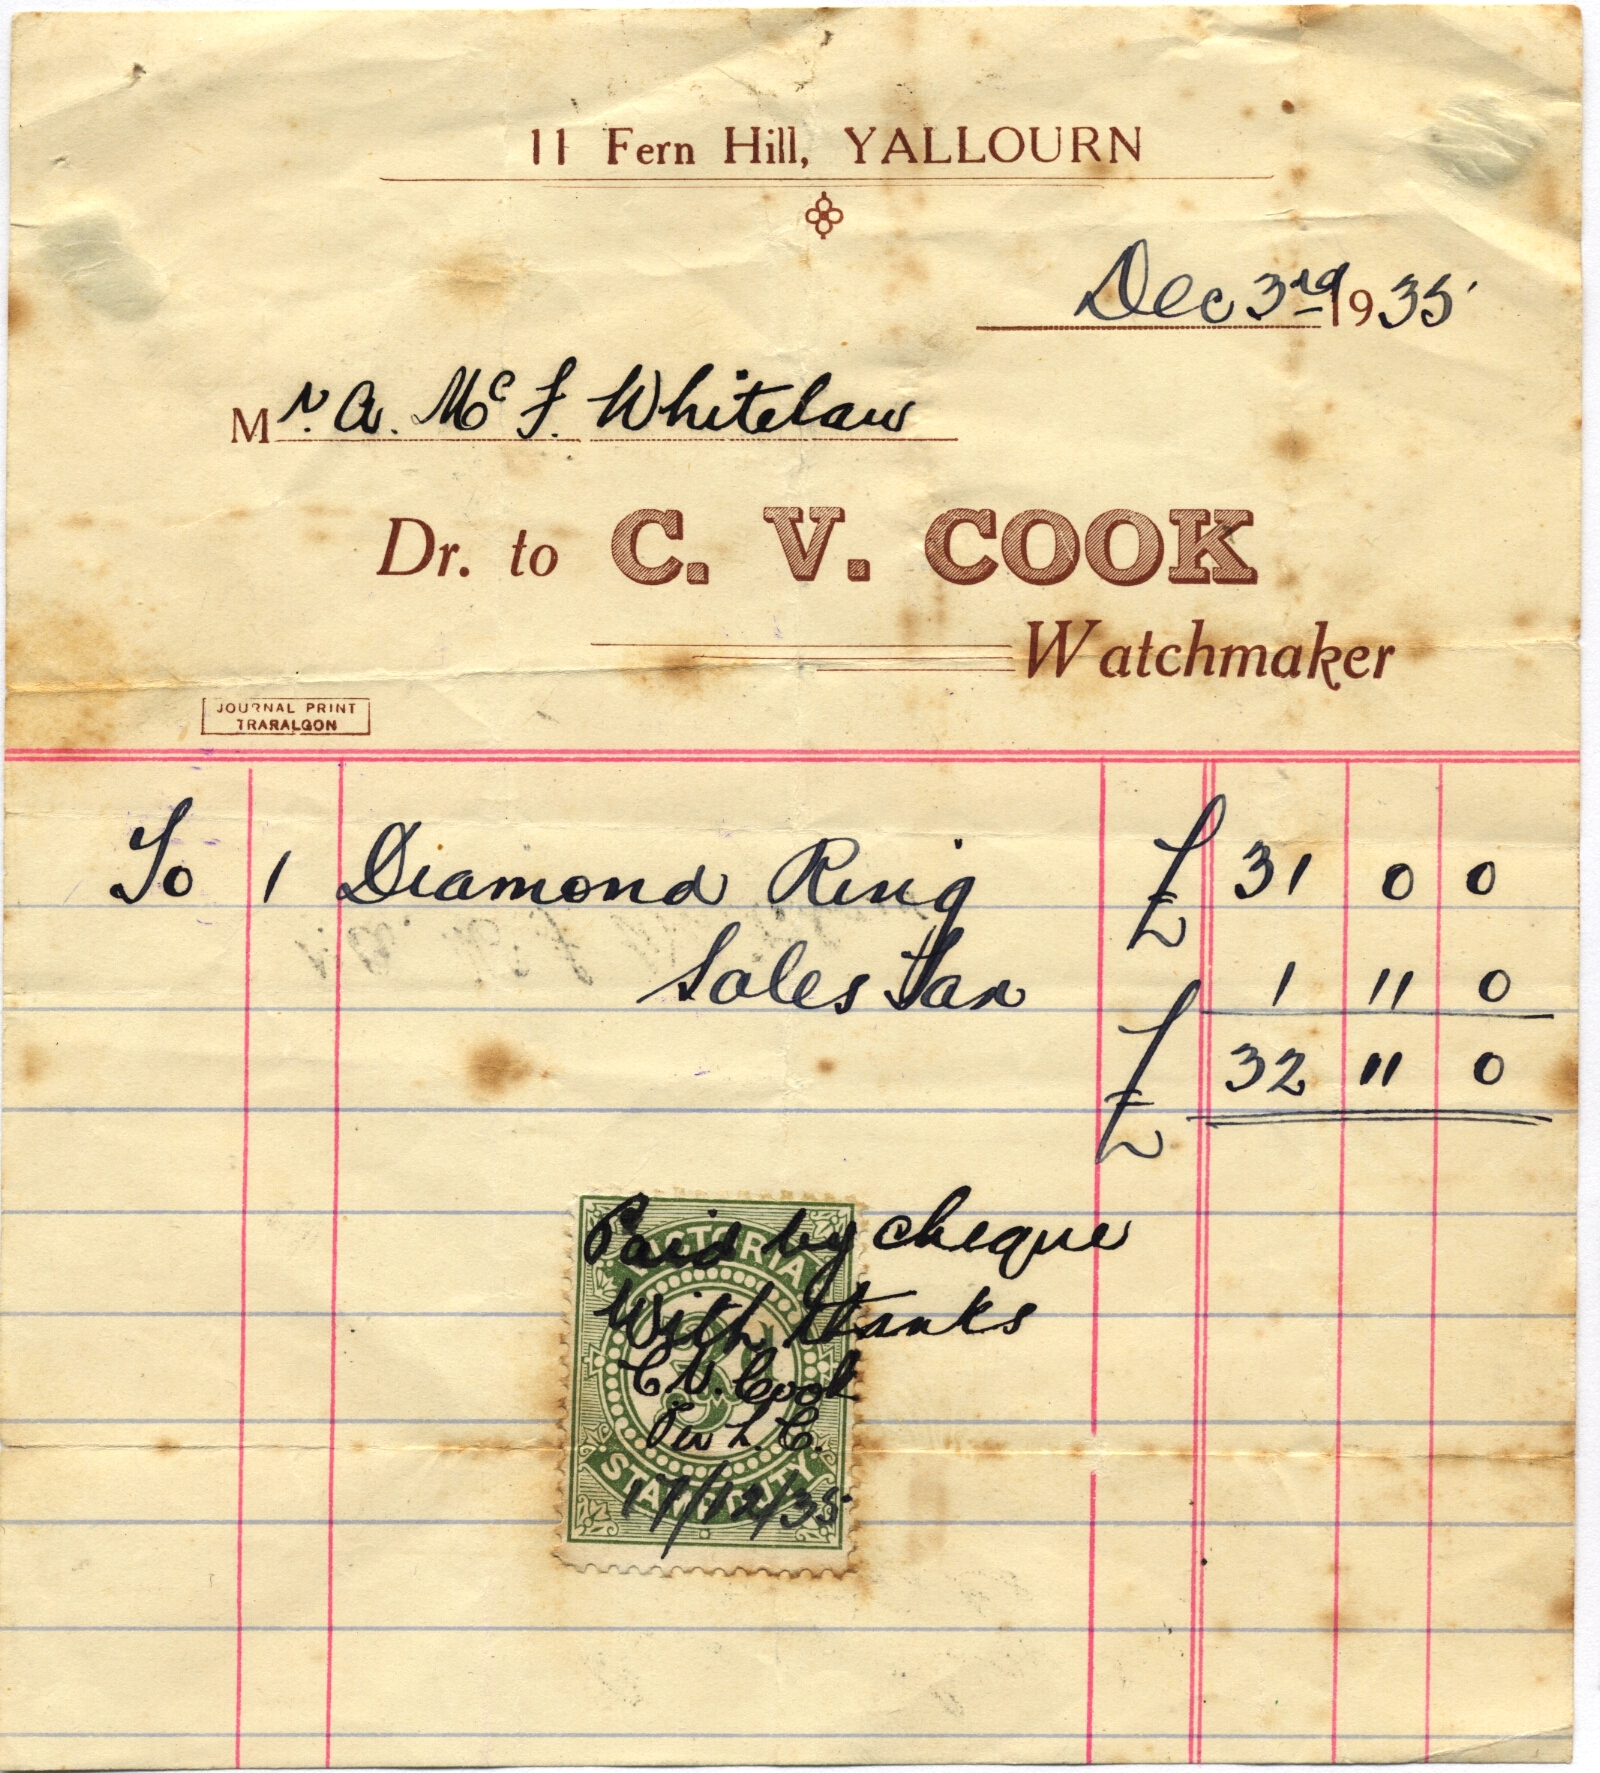 11 Fern Hill, YALLOURN
Dec 3rd 1935
Mr. A. McF. Whitelaw
Dr. to C. V. COOK
Watchmaker
JOURNAL PRINT
TRARALGON
To 1 Diamond Ring £ 31 0 0
Sales Tax 1 11 0
£ 32 11 0
VICTORIA
Paid by cheque
With thanks
C. V. Cook
Per L. C.
3D
STAMP DUTY
17/12/35